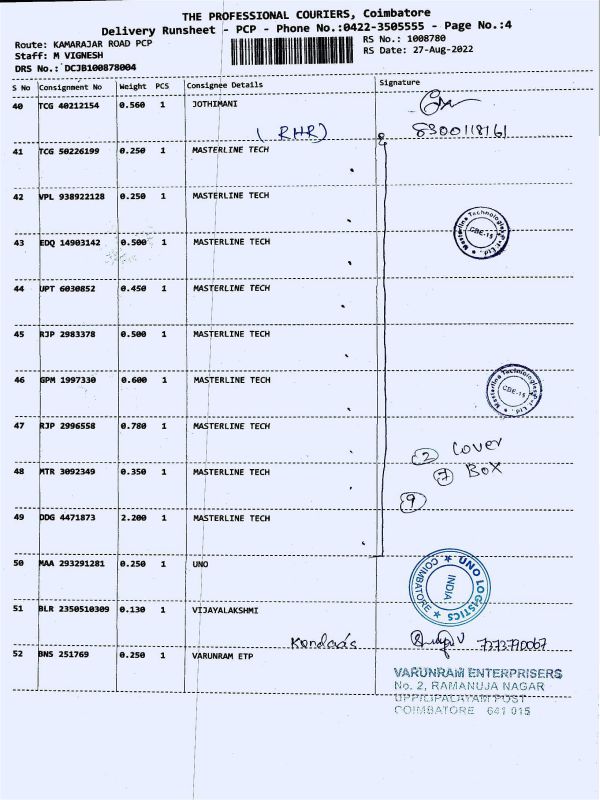 THE PROFESSIONAL COURIERS, Coimbatore
Delivery Runsheet - PCP - Phone No.:0422-3505555 - Page No.:4
Route: KAMARAJAR ROAD PCP
RS No.: 1008780
Staff: M VIGNESH
RS Date: 27-Aug-2022
DRS No.: DCJB100878004
S No Consignment No Weight PCS Consignee Details Signature
40 TCG 40212154 0.560 1 JOTHIMANI
(RHR) 8300118161
41 TCG 50226199 0.250 1 MASTERLINE TECH
42 VPL 938922128 0.250 1 MASTERLINE TECH
Masterline Technologies Pvt Ltd. CBE-15
43 EDQ 14903142 0.500 1 MASTERLINE TECH
44 UPT 6030852 0.450 1 MASTERLINE TECH
45 RJP 2983378 0.500 1 MASTERLINE TECH
46 GPM 1997330 0.600 1 MASTERLINE TECH
Masterline Technologies Pvt Ltd. CBE-15
47 RJP 2996558 0.780 1 MASTERLINE TECH
2 Cover
48 MTR 3092349 0.350 1 MASTERLINE TECH
7 BOX
9
49 DDG 4471873 2.200 1 MASTERLINE TECH
50 MAA 293291281 0.250 1 UNO
UNO LOGISTICS COIMBATORE INDIA
51 BLR 2350510309 0.130 1 VIJAYALAKSHMI
52 BNS 251769 0.250 1 VARUNRAM ETP
VARUNRAM ENTERPRISERS
No. 2, RAMANUJA NAGAR
UPPILIPALAYAM POST
COIMBATORE 641 015